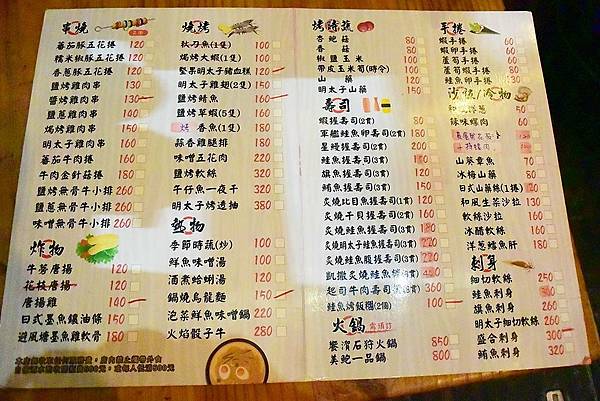 串燒
蕃茄豚五花捲 120
糯米椒豚五花捲 120
香蔥豚五花捲 120
鹽烤雞肉串 130
醬烤雞肉串 130
鹽蔥雞肉串 150
焗烤雞肉串 150
明太子雞肉串 160
蕃茄牛肉捲 160
牛肉金針菇捲 180
鹽烤無骨牛小排 260
鹽蔥無骨牛小排 260
味噌無骨牛小排 260
炸物
牛蒡唐揚 120
花枝唐揚 120
唐揚雞 100
日式墨魚鑲油條 150
避風塘墨魚雞軟骨 180
燒烤
秋刀魚(1隻) 100
焗烤大蝦(1隻) 100
堅果明太子豬血糕 120
明太子雞翅(2隻) 150
鹽烤鯖魚 160
鹽烤草蝦(5隻) 180
烤香魚(1隻) 180
蒜香雞腿排 180
味噌五花肉 220
鹽烤軟絲 320
午仔魚一夜干 320
明太子烤透抽 380
熱物
季節時蔬(炒) 100
鮮魚味噌湯 100
酒煮蛤蜊湯 120
鍋燒烏龍麵 150
泡菜鮮魚味噌鍋 220
火焰骰子牛 280
烤時蔬
杏鮑菇 80
香菇 80
椒鹽玉米 100
帶皮玉米筍(時令) 100
山藥 120
明太子山藥 150
壽司
蝦握壽司(2貫) 80
軍艦鮭魚卵壽司(2貫) 80
星鰻握壽司(2貫)
鮭魚握壽司(3貫)
旗魚握壽司(3貫) 120
鮪魚握壽司(3貫)
炙燒比目魚握壽司(2貫)
炙燒干貝握壽司(2貫)
炙燒鮭魚握壽司(3貫)
炙燒明太子鮭魚握壽司(3貫)
炙燒鮭魚腹握壽司(3貫)
凱撒炙燒鮭魚握壽司(3貫)
起司牛肉壽司(3貫)
鮭魚烤飯糰(2個) 100
火鍋 需預訂
饗濱石狩火鍋 850
美鮑一品鍋 800
手捲
蝦手捲 60
蝦卵手捲 60
蘆筍手捲 60
蘆筍蝦手捲 80
鮭魚卵手捲 100
沙拉/冷物
和風洋蔥 50
辣味螺肉 60
山葵章魚 70
冰梅山藥 80
日式山藥絲(1捲) 120
和風生菜沙拉 130
軟絲沙拉 160
冰醋軟絲 160
洋蔥鱈魚肝 180
刺身
細切軟絲 250
鮭魚刺身 300
旗魚刺身 250
明太子細切軟絲 300
盛合刺身 350
鮪魚刺身 320